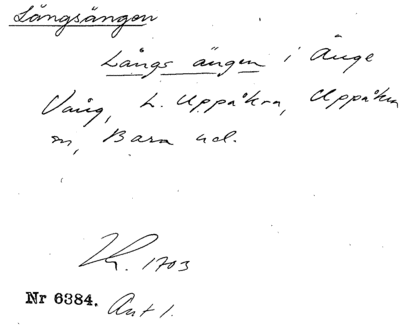 Långsängen
Långs ängen i Änge
Vång, L. Uppåkra, Uppåkra
sn, Bara hd.
Kr. 1703
Nr 6384. Ant 1.